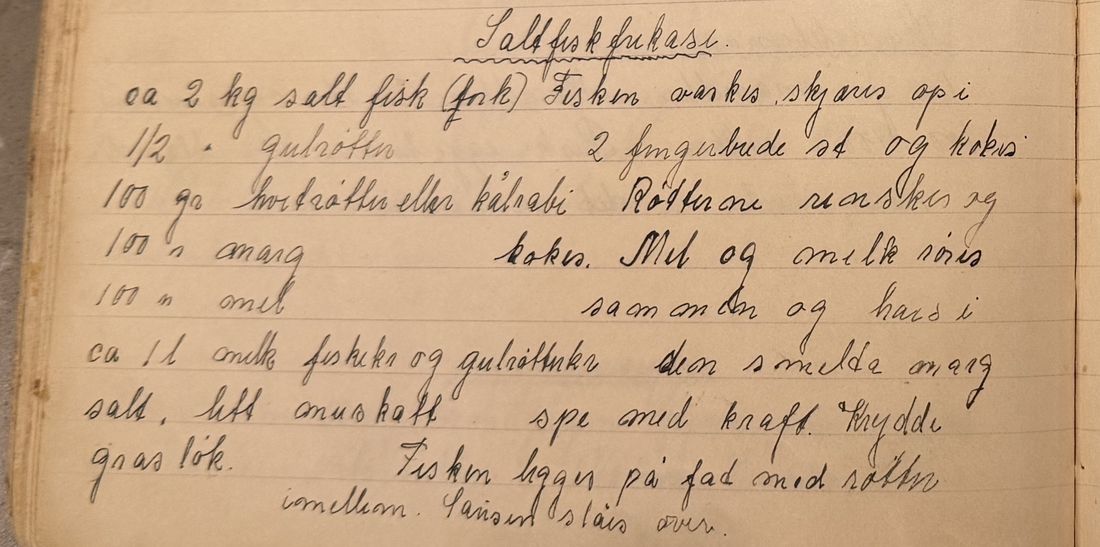 Saltfiskfrikase.
ca 2 kg salt fisk (tork) Fisken vaskes, skjæres op i
1/2 " gulrøtter 2 fingerbrede st og kokes
100 gr hvitrøtter eller kålrabi Røtterne renskes og
100 " marg kokes. Mel og melk røres
100 " mel sammen og haes i
ca 1 l melk fiskekr og gulrøtterkr den smelta marg
salt, litt muskatt spe med kraft. Krydde
grasløk. Fisken legges på fad med røtter
imellem. Sausen slåes over.